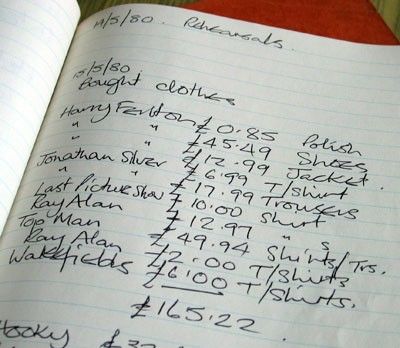 14/5/80. Rehearsals.
15/5/80
Bought clothes
Harry Fenton £0.85 Polish
" " £45.49 Shoes
" " £12.99 Jacket.
Jonathan Silver £6.99 T/Shirt
" " £17.99 Trousers
Last Picture Show £10.00 Shirt
Ray Alan £12.97 " s
Top Man £49.94 Shirts/Trs.
Ray Alan £2.00 T/Shirts
Wakefields £6.00 T/Shirts.
£165.22.
Hooky